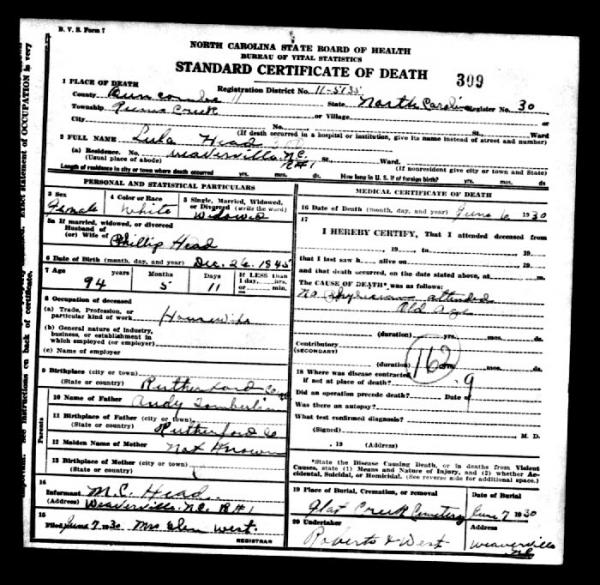 B. V. S. Form 7
NORTH CAROLINA STATE BOARD OF HEALTH
BUREAU OF VITAL STATISTICS
STANDARD CERTIFICATE OF DEATH 399
1 PLACE OF DEATH
Registration District No. 11-5135
County Buncombe State North Carolina Register No. 30
Township or Village
City Ward
(If death occurred in a hospital or institution, give its name instead of street and number)
2 FULL NAME Lula Head
(a) Residence. Weaverville, N.C. R#1 St. Ward.
(Usual place of abode) (If nonresident give city or town and State)
Length of residence in city or town where death occurred yrs. mos. ds. How long in U. S. if of foreign birth? yrs. mos. ds.
PERSONAL AND STATISTICAL PARTICULARS
3 Sex Female
4 Color or Race White
5 Single, Married, Widowed, or Divorced (write the word) Widowed
5a If married, widowed, or divorced
Husband of
(or) Wife of Phillip Head
6 Date of Birth (month, day, and year) Dec. 26, 1845
7 Age 94 years Months 5 Days 11 If LESS than 1 day, hrs. or min.
8 Occupation of deceased
(a) Trade, Profession, or particular kind of work Housewife
(b) General nature of industry, business, or establishment in which employed (or employer)
(c) Name of employer
9 Birthplace (city or town) Rutherford Co
(State or country)
Parents
10 Name of Father Andy
11 Birthplace of Father (city or town) Rutherford Co
(State or country)
12 Maiden Name of Mother Not Known
13 Birthplace of Mother (city or town)
(State or country)
14
Informant M.C. Head
(Address) Weaverville, N.C. R#1
15
Filed June 7, 1930 Mrs Glen West
REGISTRAR
MEDICAL CERTIFICATE OF DEATH
16 Date of Death (month, day, and year) June 6 1930
17
I HEREBY CERTIFY, That I attended deceased from
, 19 , to , 19
that I last saw h alive on , 19
and that death occurred, on the date stated above, at m.
The CAUSE OF DEATH* was as follows:
No Physician attended
Old Age
(duration) yrs. mos. ds.
Contributory
(SECONDARY)
(duration) yrs. mos. ds.
162
18 Where was disease contracted
if not at place of death? 9
Did an operation precede death? Date of
Was there an autopsy?
What test confirmed diagnosis?
(Signed) M. D.
, 19 (Address)
*State the Disease Causing Death, or in deaths from Violent
Causes, state (1) Means and Nature of Injury, and (2) whether Accidental, Suicidal, or Homicidal. (See reverse side for additional space.)
19 Place of Burial, Cremation, or removal Date of Burial
Flat Creek Cemetery June 7 1930
20 Undertaker (Address)
Roberts & West Weaverville NC